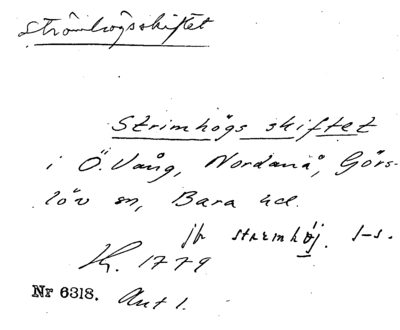 Strömhögsskiftet
Strimhögs skiftet
i Ö. Vång, Nordanå, Görs-
löv sn, Bara hd.
jfr strimhöj. s-s.
Kh. 1779
Nr 6318. Aut 1.